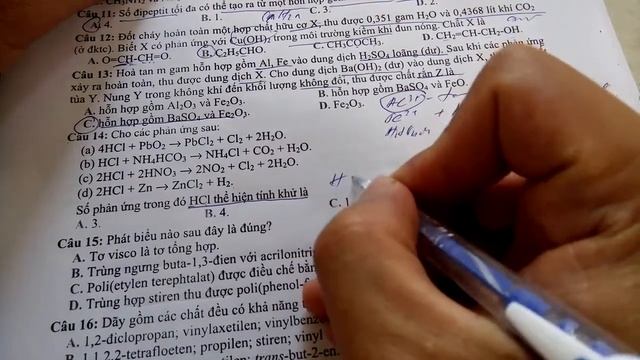 Câu 11: Số đipeptit tối đa có thể tạo ra từ một hỗn hợp
A. 4. B. 1. C. 3. D. 2.
Câu 12: Đốt cháy hoàn toàn một hợp chất hữu cơ X, thu được 0,351 gam H2O và 0,4368 lít khí CO2
(ở đktc). Biết X có phản ứng với Cu(OH)2 trong môi trường kiềm khi đun nóng. Chất X là
A. O=CH-CH=O. B. C2H5CHO. C. CH3COCH3. D. CH2=CH-CH2-OH.
Câu 13: Hoà tan m gam hỗn hợp gồm Al, Fe vào dung dịch H2SO4 loãng (dư). Sau khi các phản ứng
xảy ra hoàn toàn, thu được dung dịch X. Cho dung dịch Ba(OH)2 (dư) vào dung dịch X, thu được kết
tủa Y. Nung Y trong không khí đến khối lượng không đổi, thu được chất rắn Z là
A. hỗn hợp gồm Al2O3 và Fe2O3. B. hỗn hợp gồm BaSO4 và FeO.
C. hỗn hợp gồm BaSO4 và Fe2O3. D. Fe2O3.
Câu 14: Cho các phản ứng sau:
(a) 4HCl + PbO2 → PbCl2 + Cl2 + 2H2O.
(b) HCl + NH4HCO3 → NH4Cl + CO2 + H2O.
(c) 2HCl + 2HNO3 → 2NO2 + Cl2 + 2H2O.
(d) 2HCl + Zn → ZnCl2 + H2.
Số phản ứng trong đó HCl thể hiện tính khử là
A. 3. B. 4. C. 1
Câu 15: Phát biểu nào sau đây là đúng?
A. Tơ visco là tơ tổng hợp.
B. Trùng ngưng buta-1,3-đien với acrilonitri
C. Poli(etylen terephtalat) được điều chế bằn
D. Trùng hợp stiren thu được poli(phenol-f
Câu 16: Dãy gồm các chất đều có khả năng
A. 1,2-điclopropan; vinylaxetilen; vinylbenz
B. 1,1,2,2-tetrafloeten; propilen; stiren; vinyl
trans-but-2-en.